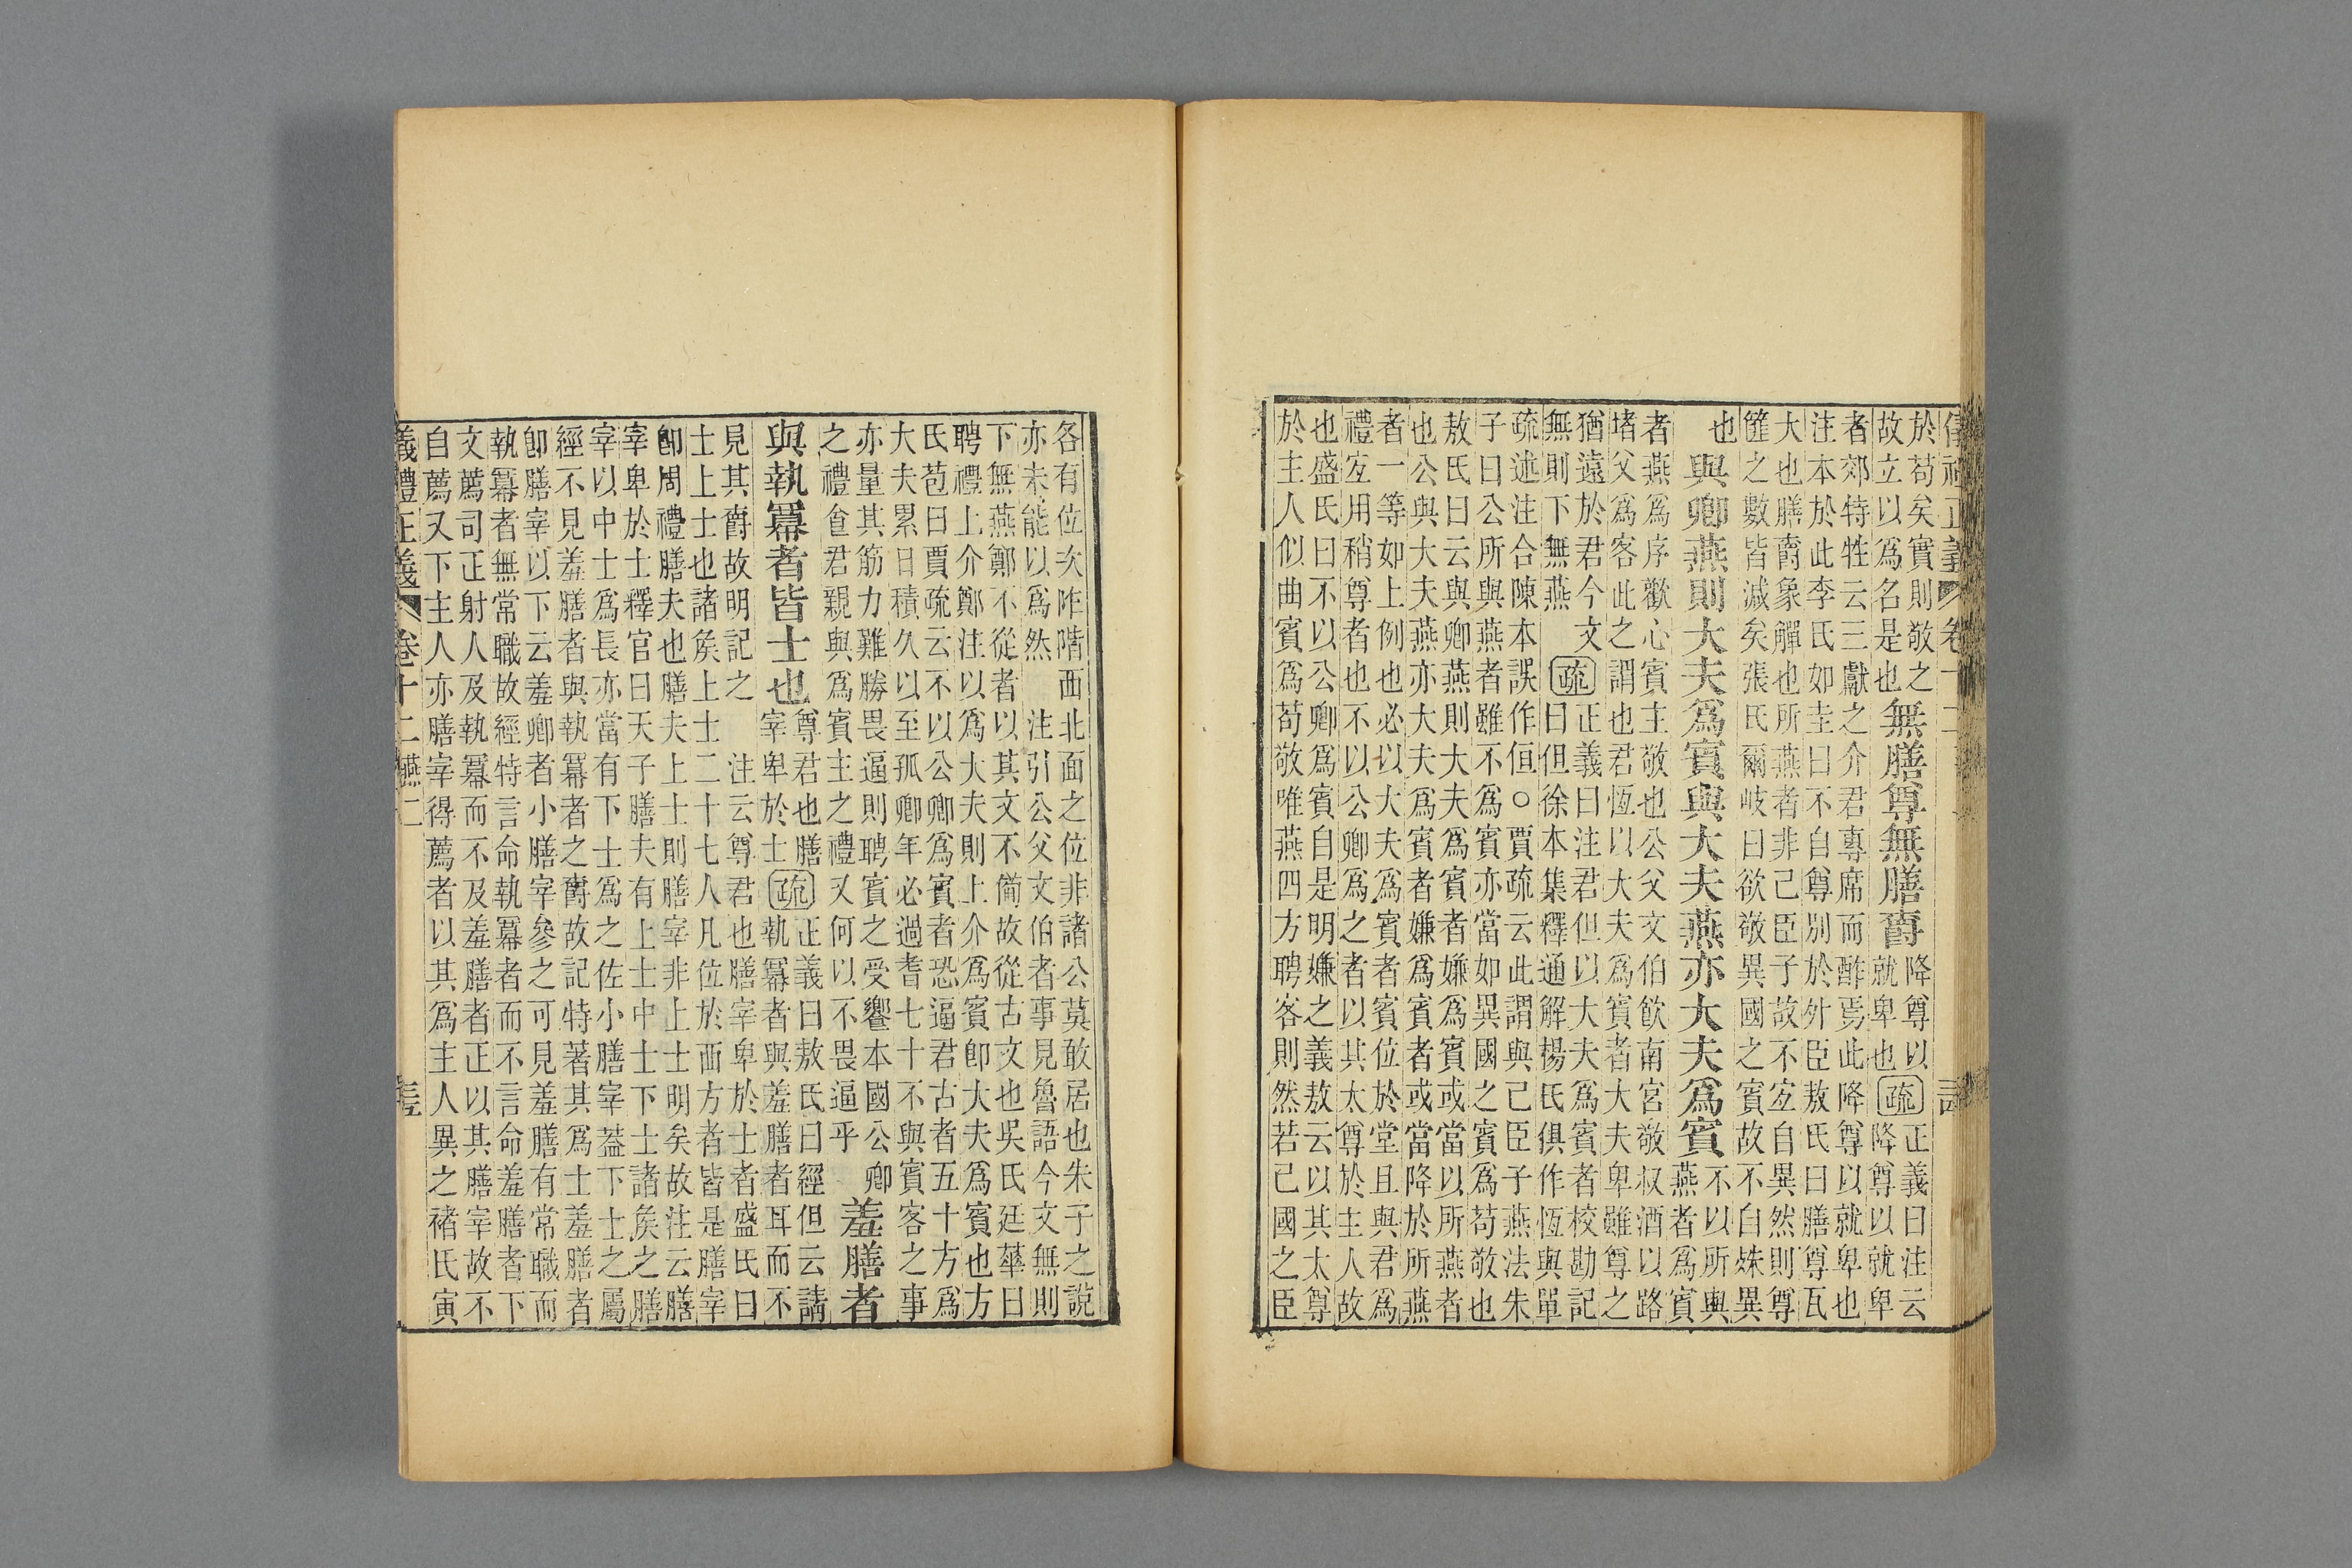 儀禮正義 卷十二
於苟矣實則敬之
故立以爲名是也
無膳尊無膳爵
降尊以
就卑也
疏
正義曰注云
降尊以就卑
者郊特牲云三獻之介君專席而酢焉此降尊以就卑也
注本於此李氏如圭曰不自尊別於外臣敖氏曰膳尊瓦
大也膳爵象觶也所燕者非己臣子故不宜自異然則尊
篚之數皆減矣張氏爾岐曰欲敬異國之賓故不自殊異
也
與卿燕則大夫爲賓與大夫燕亦大夫爲賓
不以所與
燕者爲賓
者燕爲序歡心賓主敬也公父文伯飲南宮敬叔酒以路
堵父爲客此之謂也君恆以大夫爲賓者大夫卑雖尊之
猶遠於君今文
無則下無燕
疏
正義曰注君但以大夫爲賓者校勘記
曰但徐本集釋通解楊氏俱作恆與單
疏述注合陳本誤作但○賈疏云此謂與己臣子燕法朱
子曰公所與燕者雖不爲賓亦當如異國之賓爲苟敬也
敖氏曰云與卿燕則大夫爲賓者嫌爲賓或當以所燕者
也公與大夫燕亦大夫爲賓者嫌爲賓者或當降於所燕
者一等如上例也必以大夫爲賓者賓位於堂且與君爲
禮宜用稍尊者也不以公卿爲之者以其太尊於主人故
也盛氏曰不以公卿爲賓自是明嫌之義敖云以其太尊
於主人似曲賓爲苟敬唯燕四方聘客則然若己國之臣
各有位次阼階西北面之位非諸公莫敢居也朱子之說
亦未能以爲然 注引公父文伯者事見魯語今文無則
下無燕鄭不從者以其文不備故從古文也吳氏廷華曰
聘禮上介鄭注以爲大夫則上介爲賓卽大夫爲賓也方
氏苞曰賈疏云不以公卿爲賓者恐逼君古者五十方爲
大夫累日積久以至孤卿年必過耆七十不與賓客之事
亦量其筋力難勝畏逼則聘賓之受饗本國公卿
之禮食君親與爲賓主之禮又何以不畏逼乎
羞膳者
與執冪者皆士也
尊君也膳
宰卑於士
疏
正義曰敖氏曰經但云請
執冪者與羞膳者耳而不
見其爵故明記之 注云尊君也膳宰卑於士者盛氏曰
士上士也諸矦上士二十七人凡位於西方者皆是膳宰
卽周禮膳夫也膳夫上士則膳宰非上士明矣故注云膳
宰卑於士釋官曰天子膳夫有上士中士下士諸矦之膳
宰以中士爲長亦當有下士爲之佐小膳宰葢下士之屬
經不見羞膳者與執冪者之爵故記特著其爲士羞膳者
卽膳宰以下云羞卿者小膳宰參之可見羞膳有常職而
執冪者無常職故經特言命執冪者而不言命羞膳者下
文薦司正射人及執冪而不及羞膳者正以其膳宰故不
自薦又下主人亦膳宰得薦者以其爲主人異之褚氏寅
儀禮正義 卷十二燕二